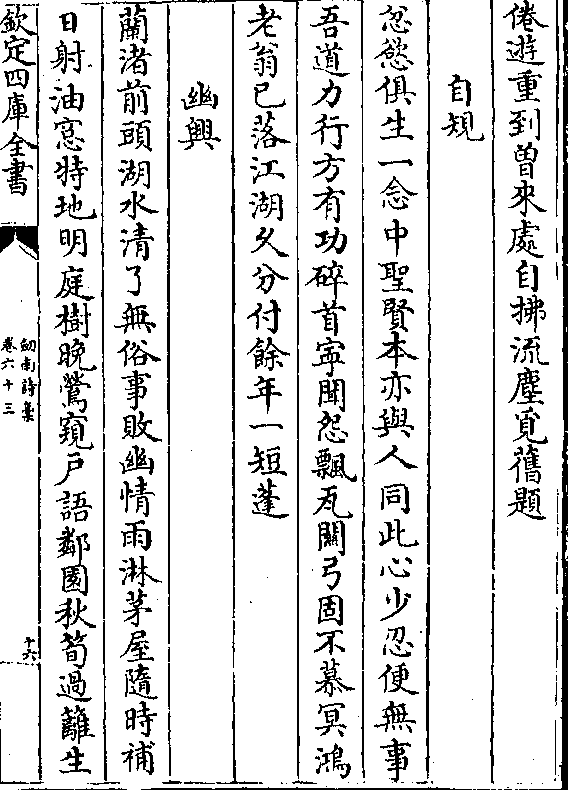 倦遊重到曽來處自拂流塵覓舊題
自規
忿慾俱生一念中聖賢本亦與人同此心少忍便無事
吾道力行方有功碎首寜聞怨飄瓦關弓固不慕冥鴻
老翁已落江湖久分付餘年一短蓬
幽興
蘭渚前頭湖水清了無俗事敗幽情雨淋茅屋隨時補
日射油窓特地明庭樹晩鶯窺戸語鄰園秋筍過籬生
欽定四庫全書
劒南詩稾
卷六十三
十六